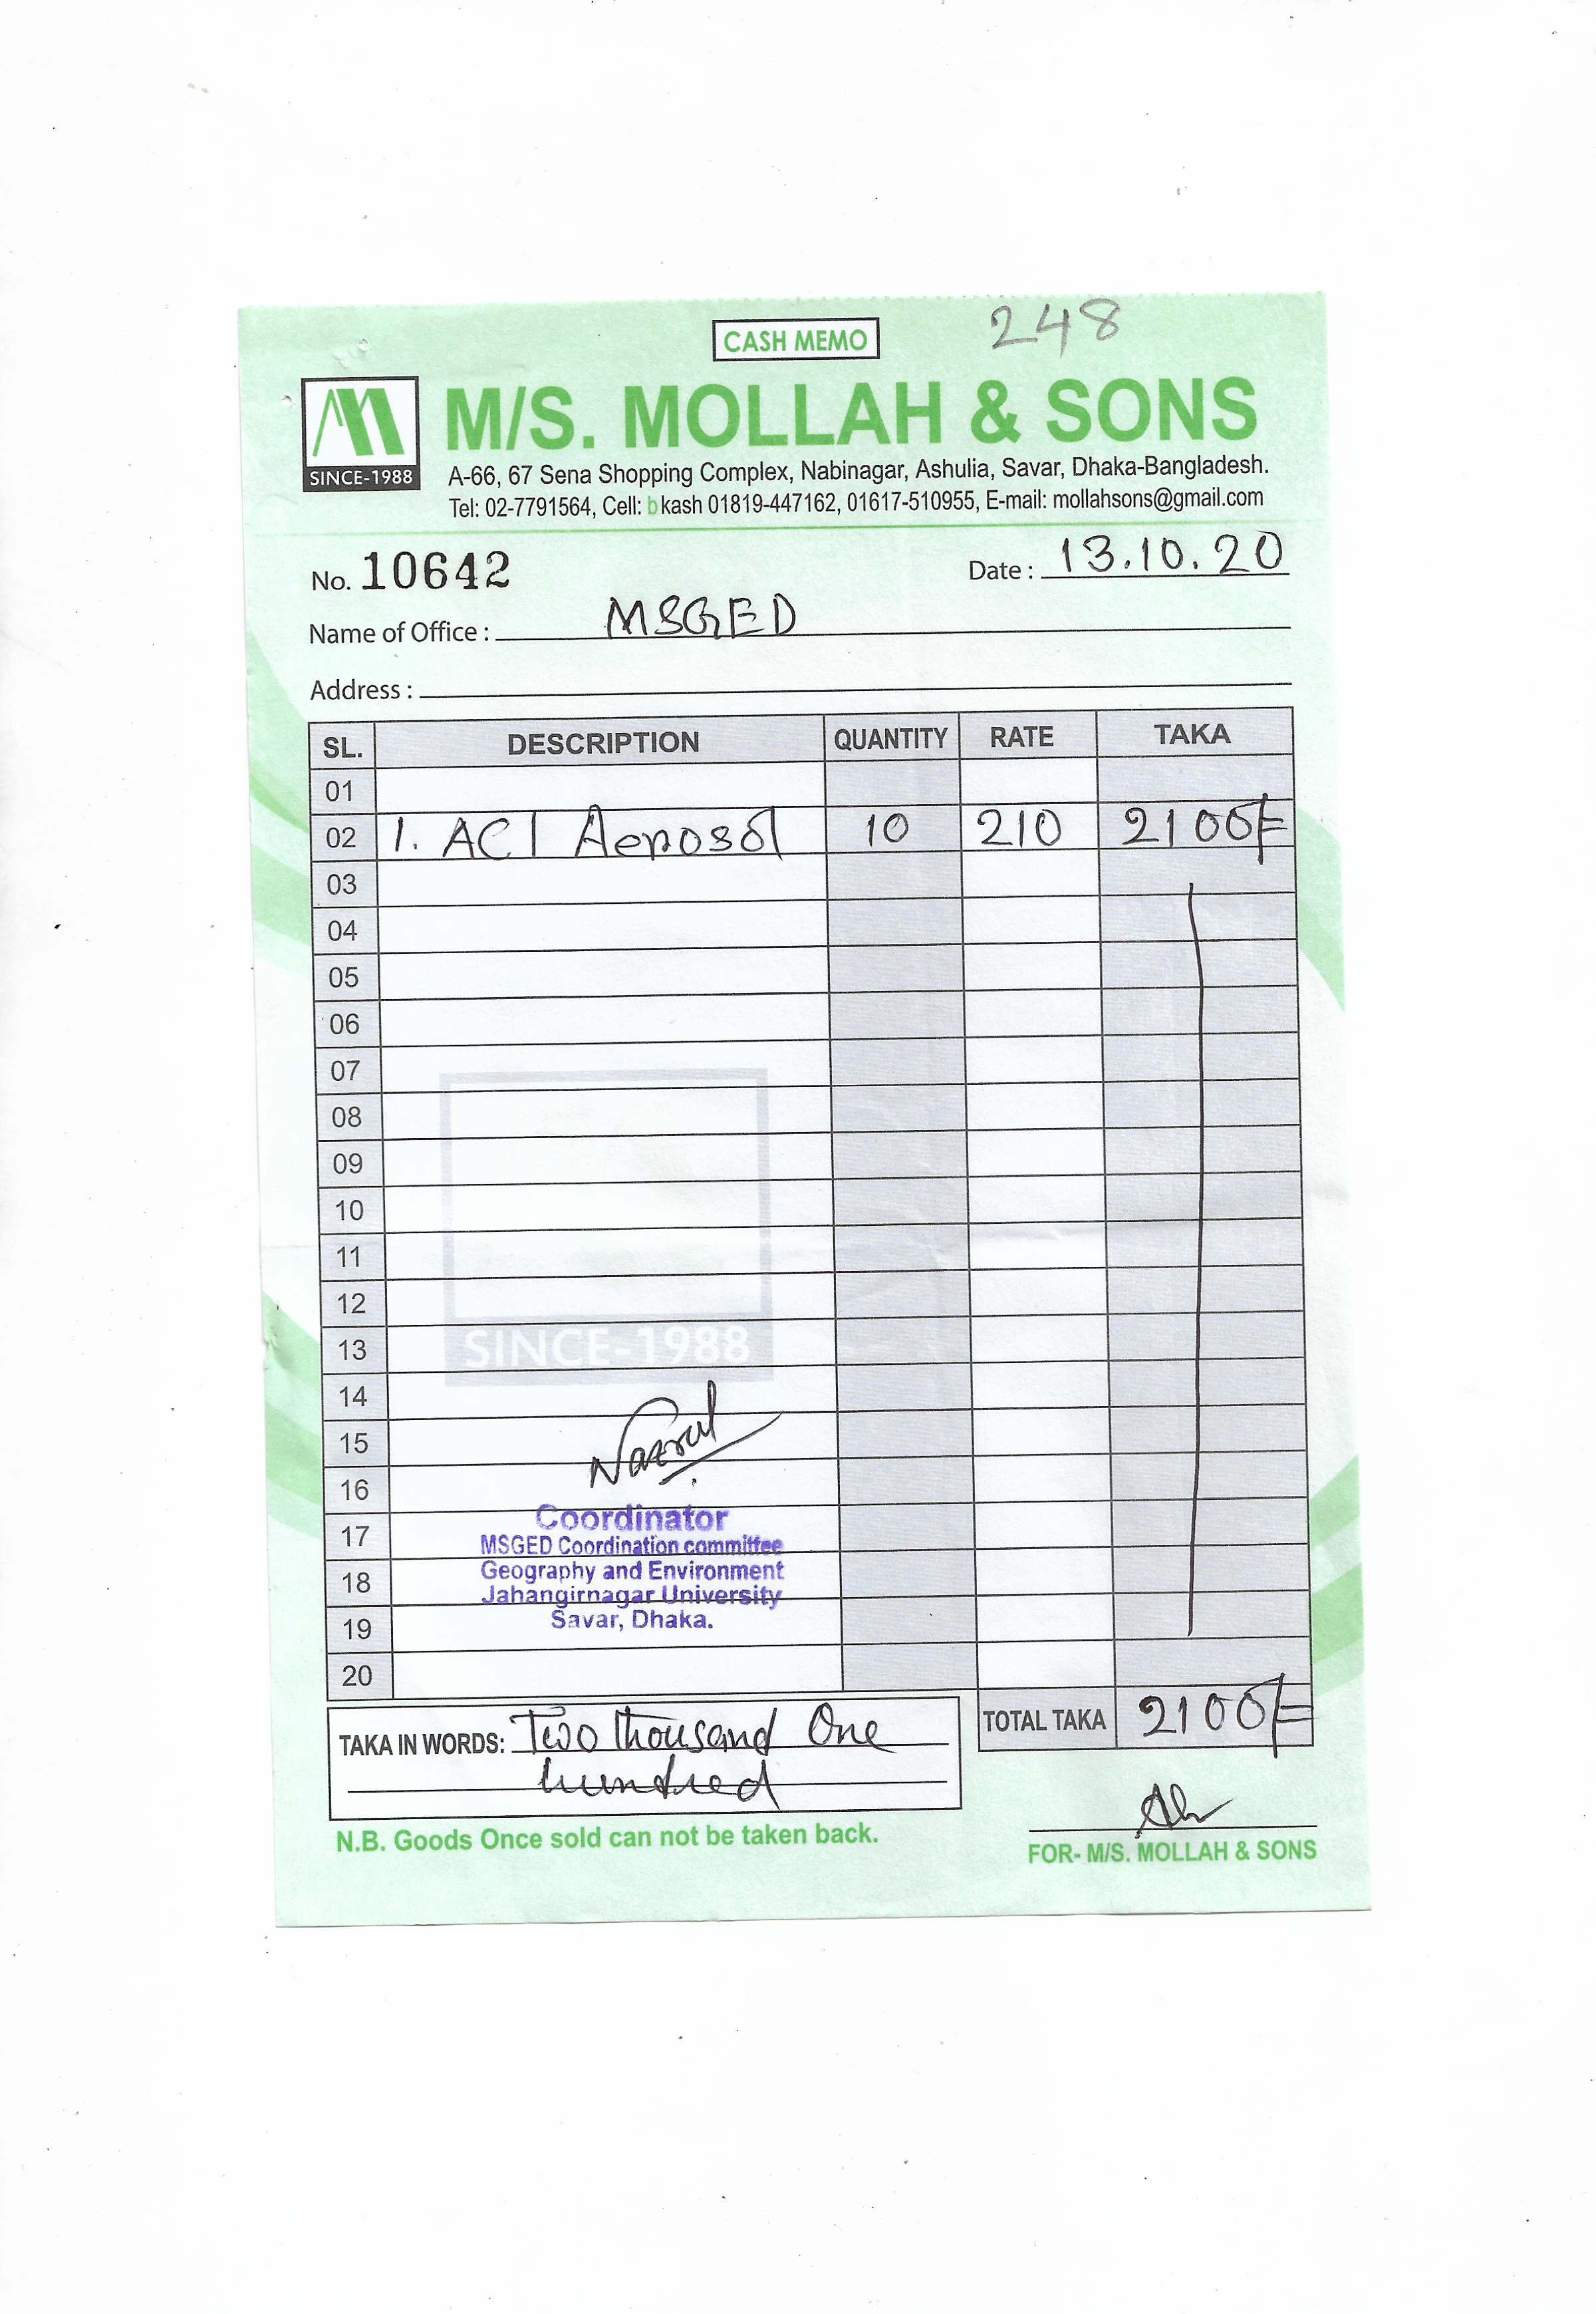 248
CASH MEMO
M/S. MOLLAH & SONS
SINCE-1988
A-66, 67 Sena Shopping Complex, Nabinagar, Ashulia, Savar, Dhaka-Bangladesh.
Tel: 02-7791564, Cell: bkash 01819-447162, 01617-510955, E-mail: mollahsons@gmail.com
No. 10642 Date : 13.10.20
Name of Office : MSGED
Address :
SL. DESCRIPTION QUANTITY RATE TAKA
01
02 1. ACI Aerosol 10 210 2100/=
03
04
05
06
07
08
09
10
11
12
13
SINCE-1988
14
15 Nazrul
16
Coordinator
17
MSGED Coordination committee
Geography and Environment
18
Jahangirnagar University
19 Savar, Dhaka.
20
TAKA IN WORDS: Two thousand One TOTAL TAKA 2100/=
hundred
N.B. Goods Once sold can not be taken back.
FOR- M/S. MOLLAH & SONS